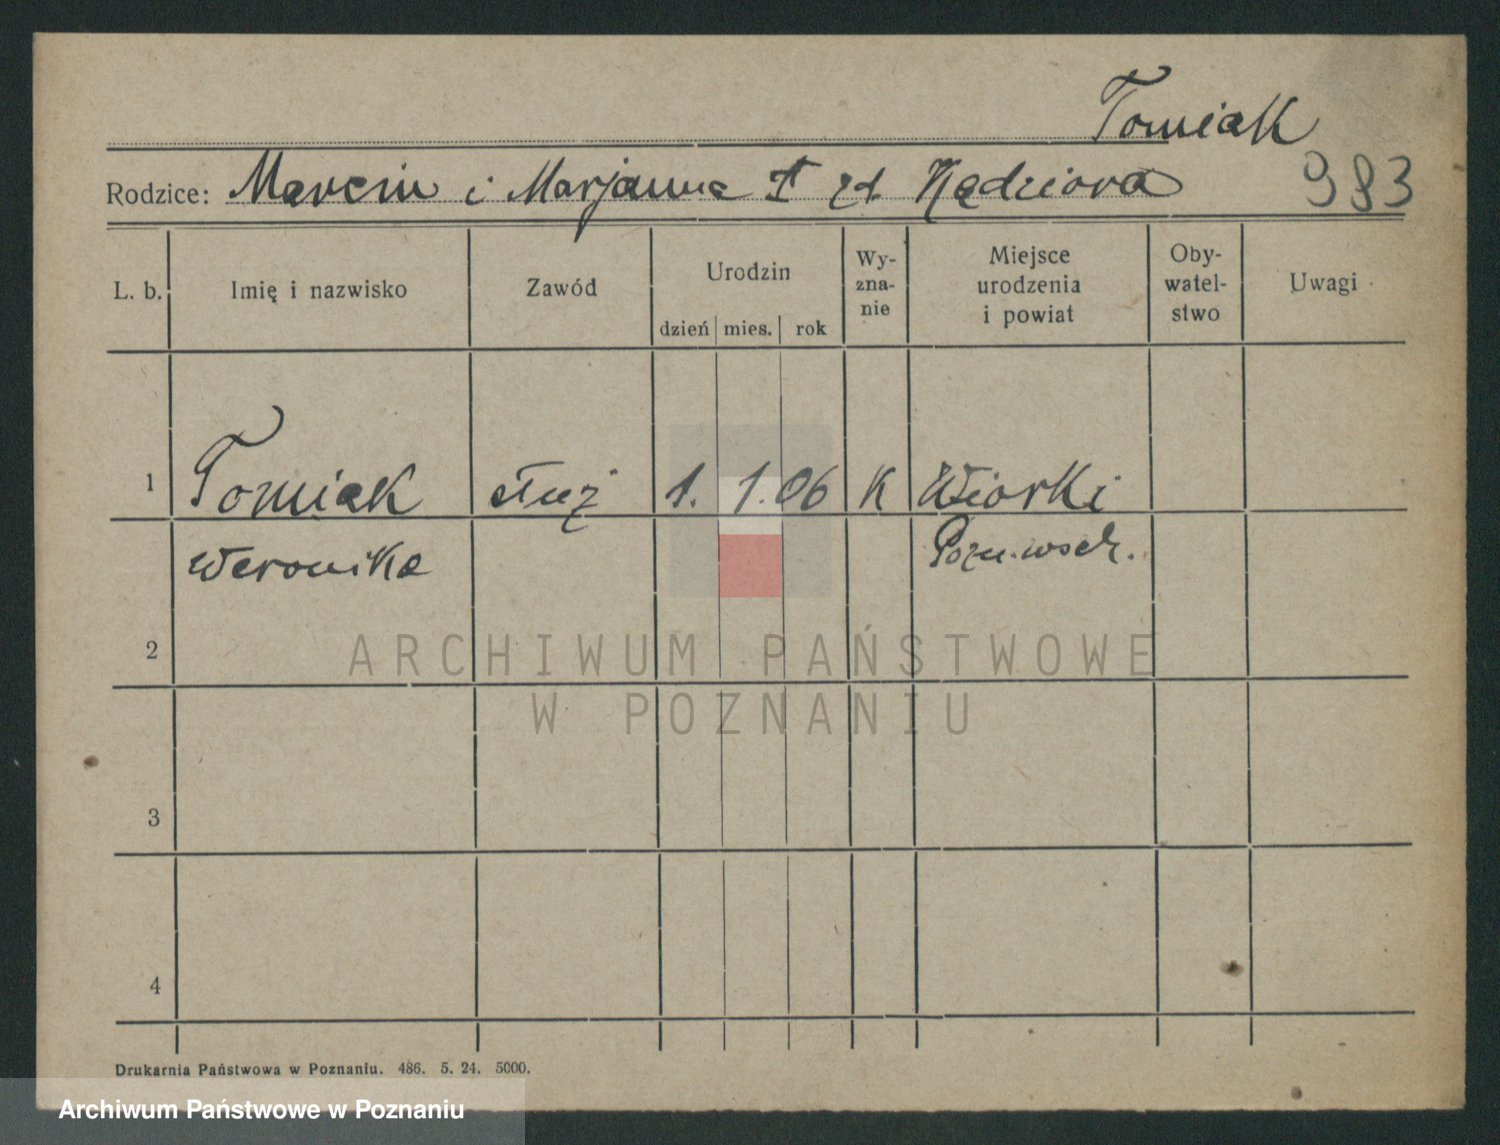 Tomiak
Rodzice: Marcin i Marjanna zd. Kędziora 983
L. b. Imię i nazwisko Zawód Urodzin dzień mies. rok Wy-zna-nie Miejsce urodzenia i powiat Oby-watel-stwo Uwagi
1 Tomiak służ 1. 1. 06 K Wiorki
Weronika Pozn. wsch.
2
ARCHIWUM PAŃSTWOWE
W POZNANIU
3
4
Drukarnia Państwowa w Poznaniu. 486. 5. 24. 5000.
Archiwum Państwowe w Poznaniu